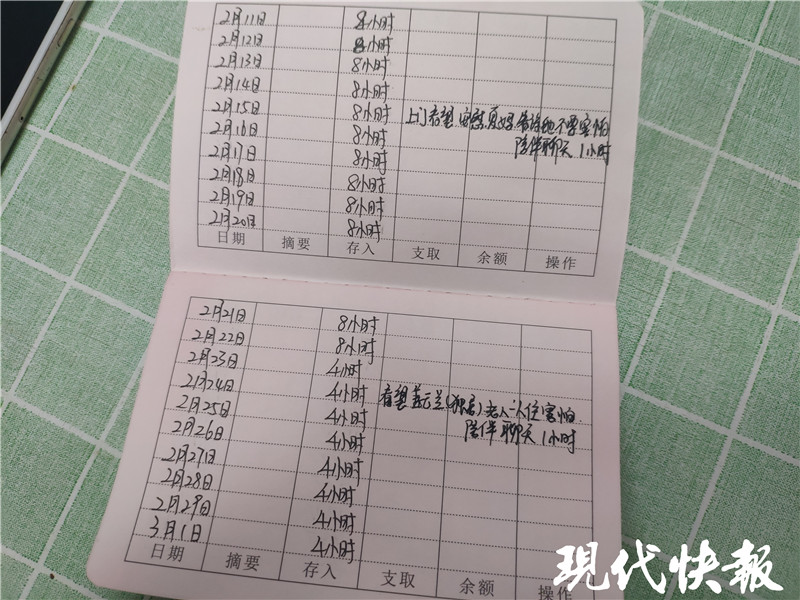 2月11日 8小时
2月12日 8小时
2月13日 8小时
2月14日 8小时
2月15日 8小时 上门看望 安慰 告诉她不要害怕
2月16日 8小时 陪伴聊天1小时
2月17日 8小时
2月18日 8小时
2月19日 8小时
2月20日 8小时
日期 摘要 存入 支取 余额 操作
2月21日 8小时
2月22日 8小时
2月23日 4小时
2月24日 4小时 看望 (独居)老人一人住害怕
2月25日 4小时 陪伴聊天1小时
2月26日 4小时
2月27日 4小时
2月28日 4小时
2月29日 4小时
3月1日 4小时
日期 摘要 存入 支取 余额 操作
现代快報